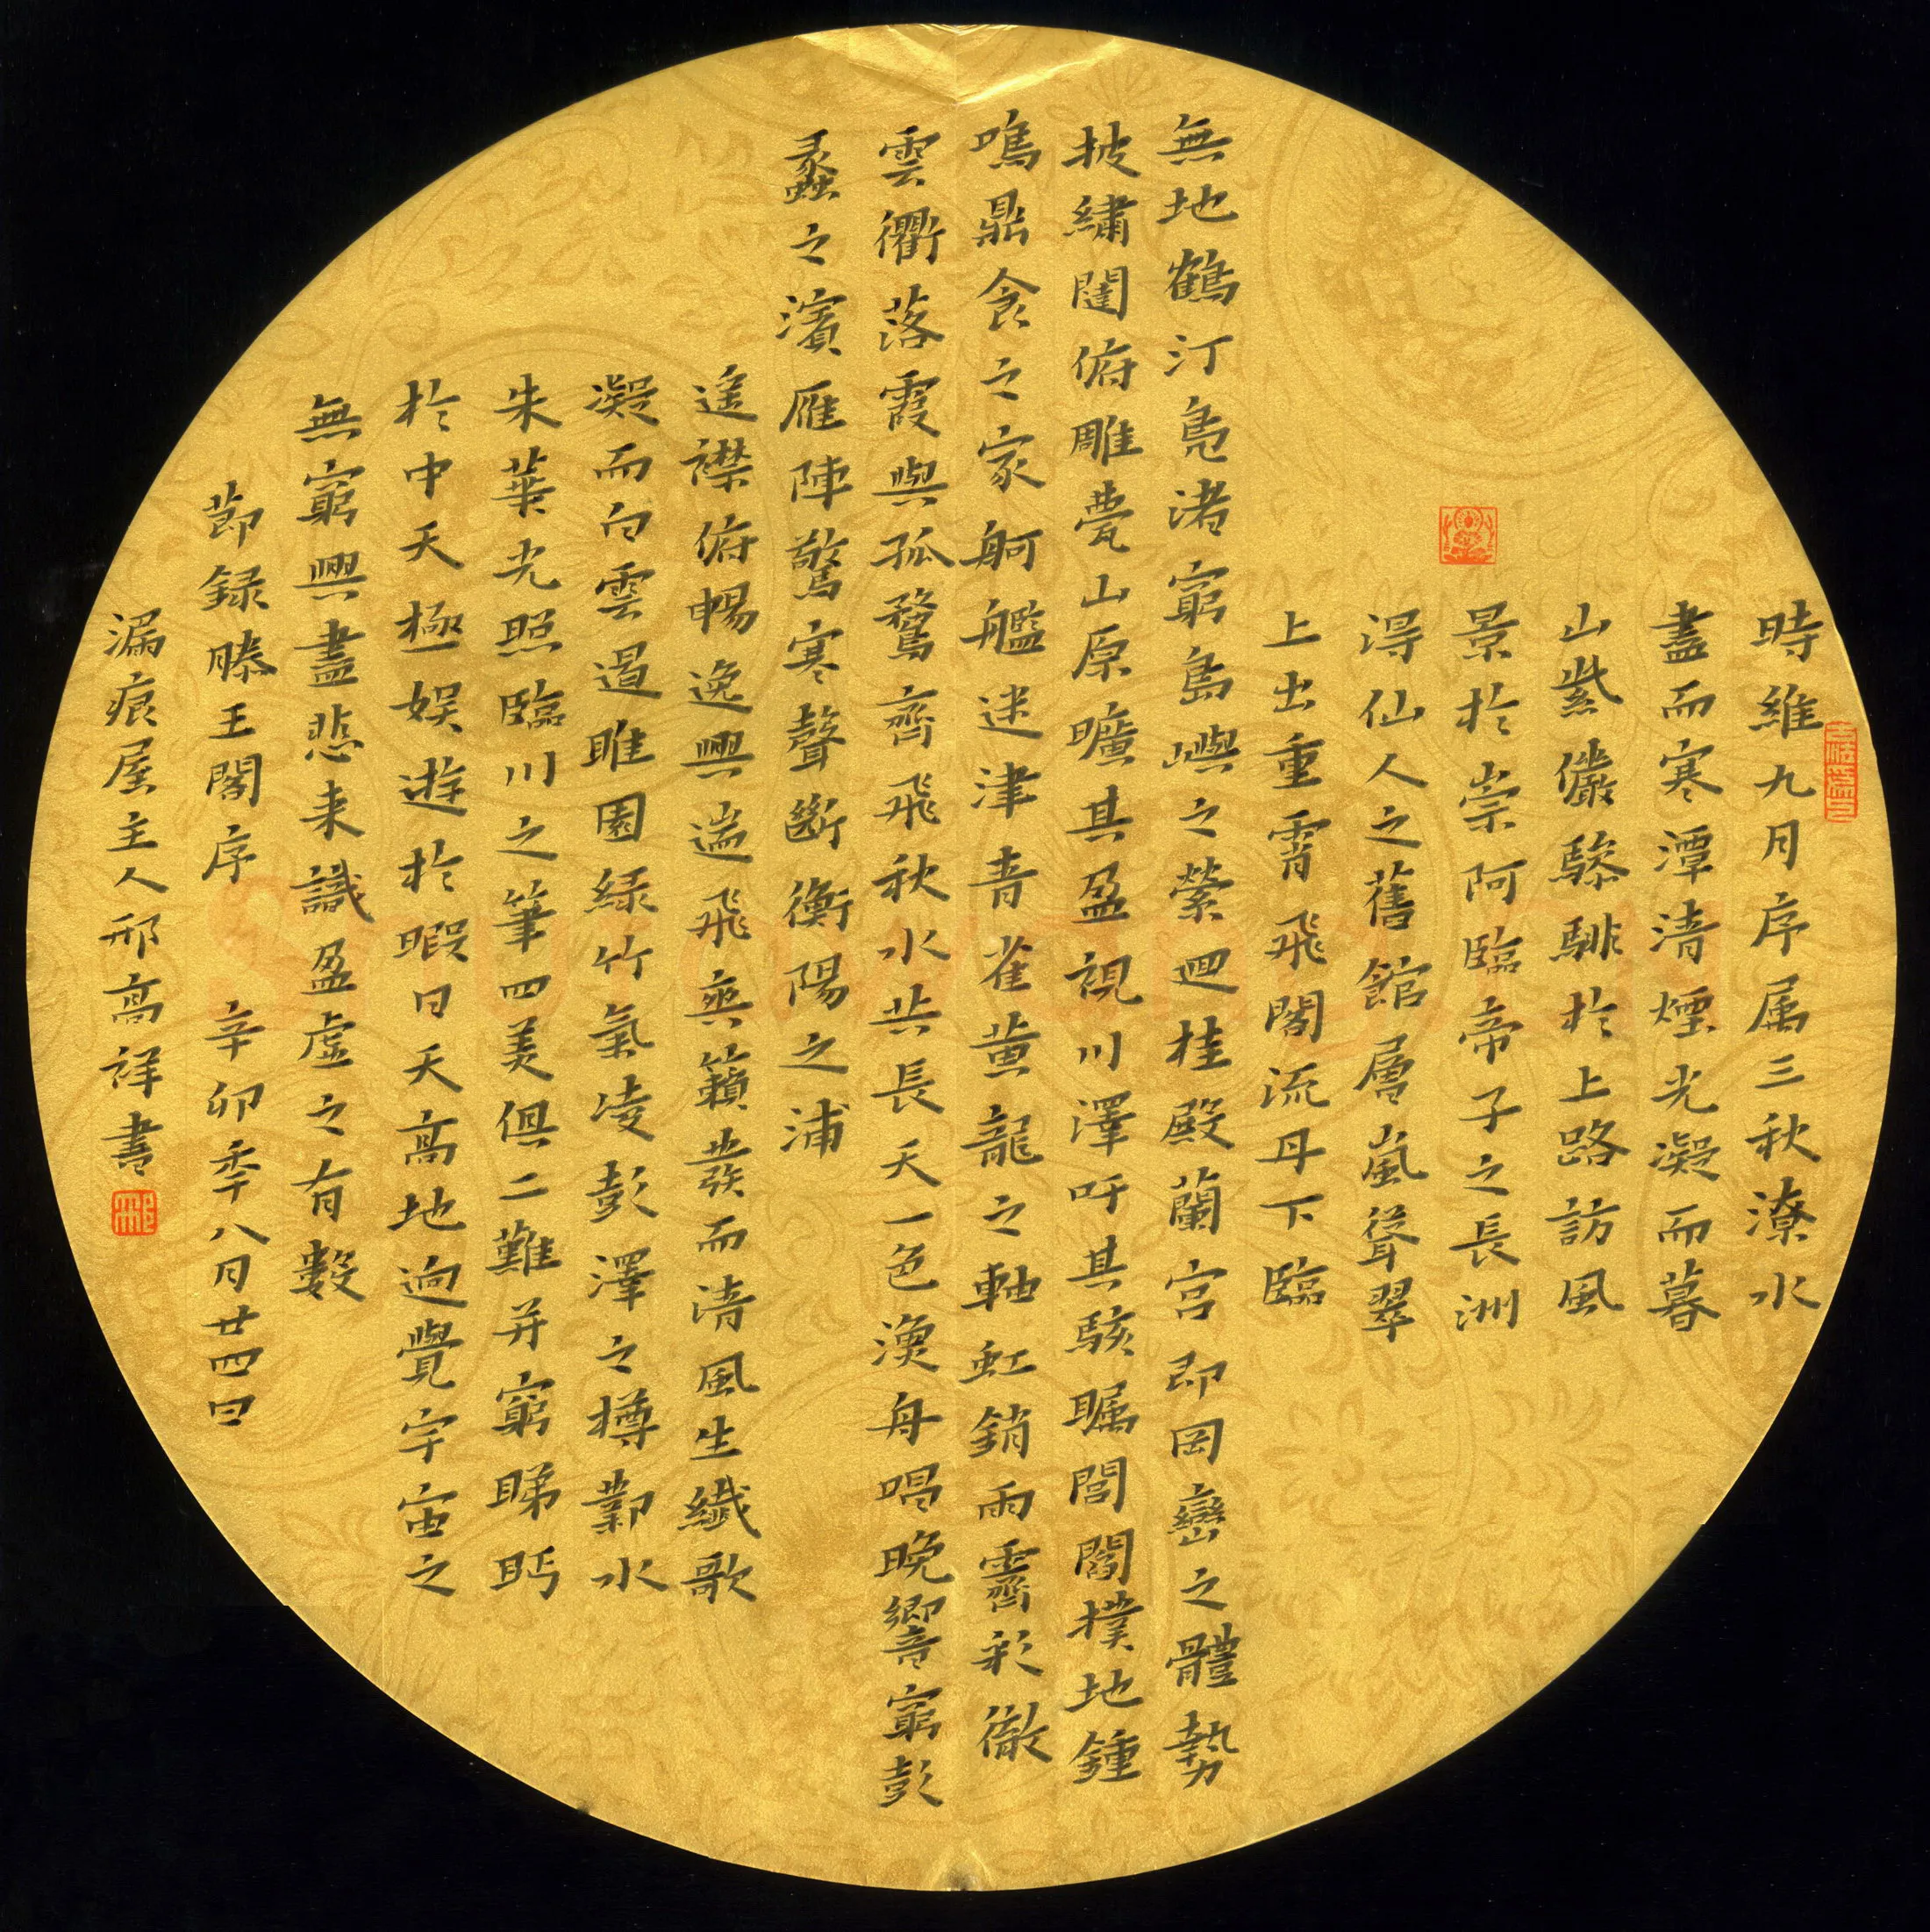 時維九月序属三秋潦水
盡而寒潭清煙光凝而暮
山紫儼驂騑於上路訪風
景於崇阿臨帝子之長洲
淂仙人之舊館層嵐聳翠
上出重霄飛閣流丹下臨
無地鶴汀鳬渚窮島嶼之縈迴桂殿蘭宮即岡巒之體勢
披繡闥俯雕甍山原曠其盈視川澤吁其駭矚閭閻撲地鍾
鳴鼎食之家舸艦迷津青雀黄龍之軸虹銷雨霽彩徹
雲衢落霞與孤鶩齊飛秋水共長天一色漁舟唱晚響窮彭
蠡之濱雁陣驚寒聲斷衡陽之浦
遥襟俯暢逸興遄飛爽籟發而清風生纖歌
凝而白雲遏睢園緑竹氣凌彭澤之樽鄴水
朱華光照臨川之筆四美俱二難并窮睇眄
於中天極娱遊於暇日天高地迥覺宇宙之
無窮興盡悲来識盈虚之有數
節録滕王閣序 辛卯季八月廿四日
漏痕屋主人邢高祥書